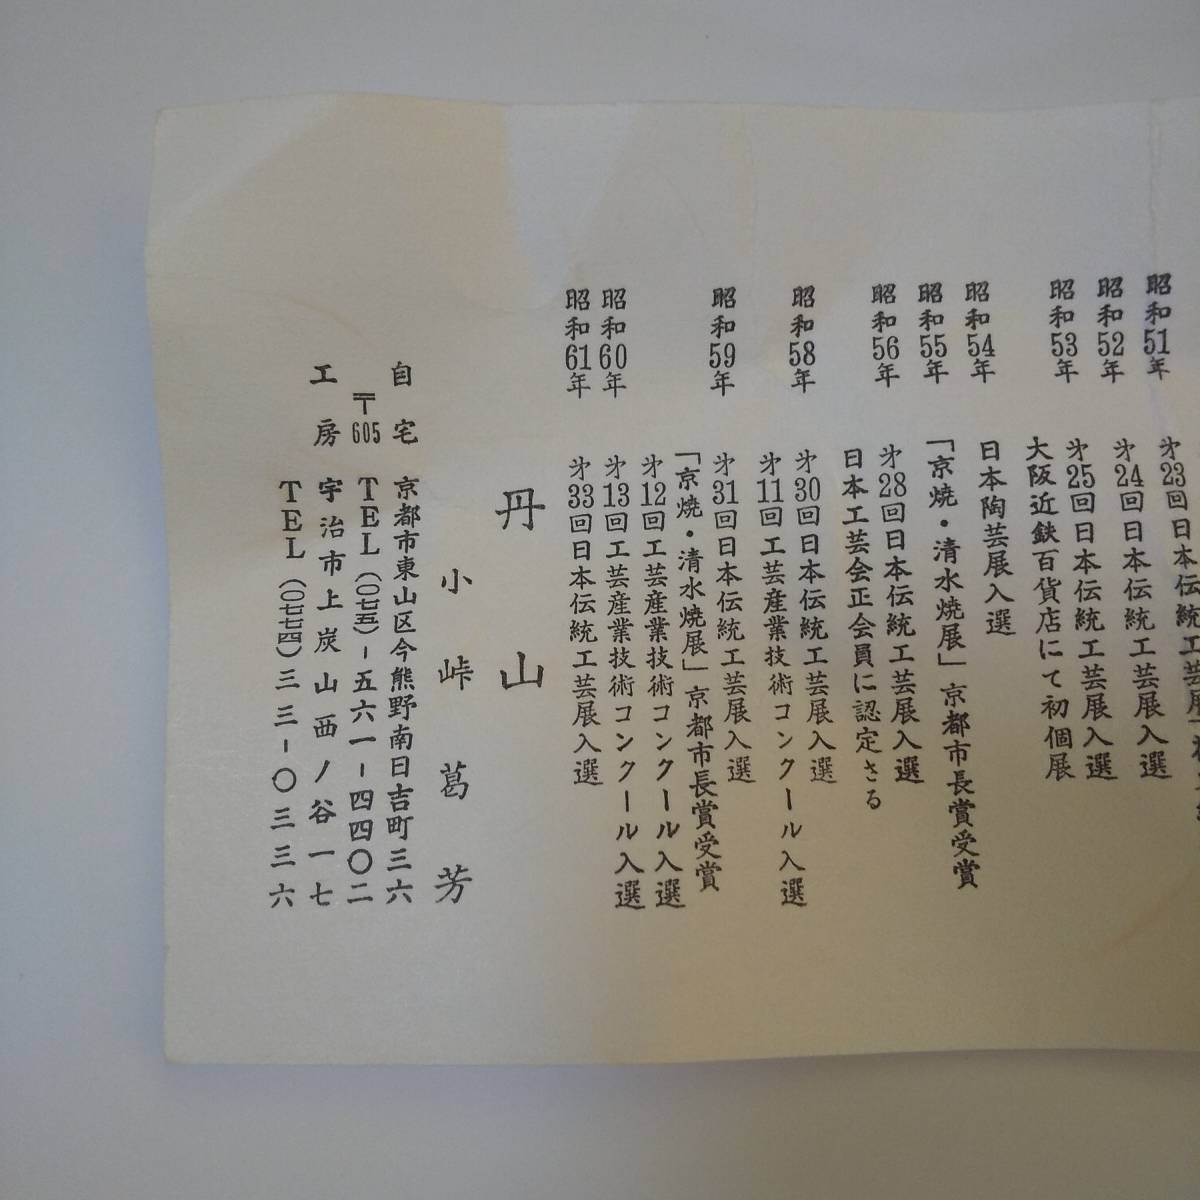 昭和51年 第23回日本伝統工芸展
昭和52年 第24回日本伝統工芸展入選
昭和53年 第25回日本伝統工芸展入選
大阪近鉄百貨店にて初個展
昭和54年 日本陶芸展入選
昭和55年 「京焼・清水焼展」京都市長賞受賞
昭和56年 第28回日本伝統工芸展入選
日本工芸会正会員に認定さる
昭和58年 第30回日本伝統工芸展入選
第11回工芸産業技術コンクール入選
昭和59年 第31回日本伝統工芸展入選
「京焼・清水焼展」京都市長賞受賞
昭和60年 第12回工芸産業技術コンクール入選
第13回工芸産業技術コンクール入選
昭和61年 第33回日本伝統工芸展入選
丹山
小峠葛芳
自宅 京都市東山区今熊野南日吉町三六
〒605 TEL(〇七五)-五六一-四四〇二
工房 宇治市上炭山西ノ谷一七
TEL(〇七七四)三三-〇三三六